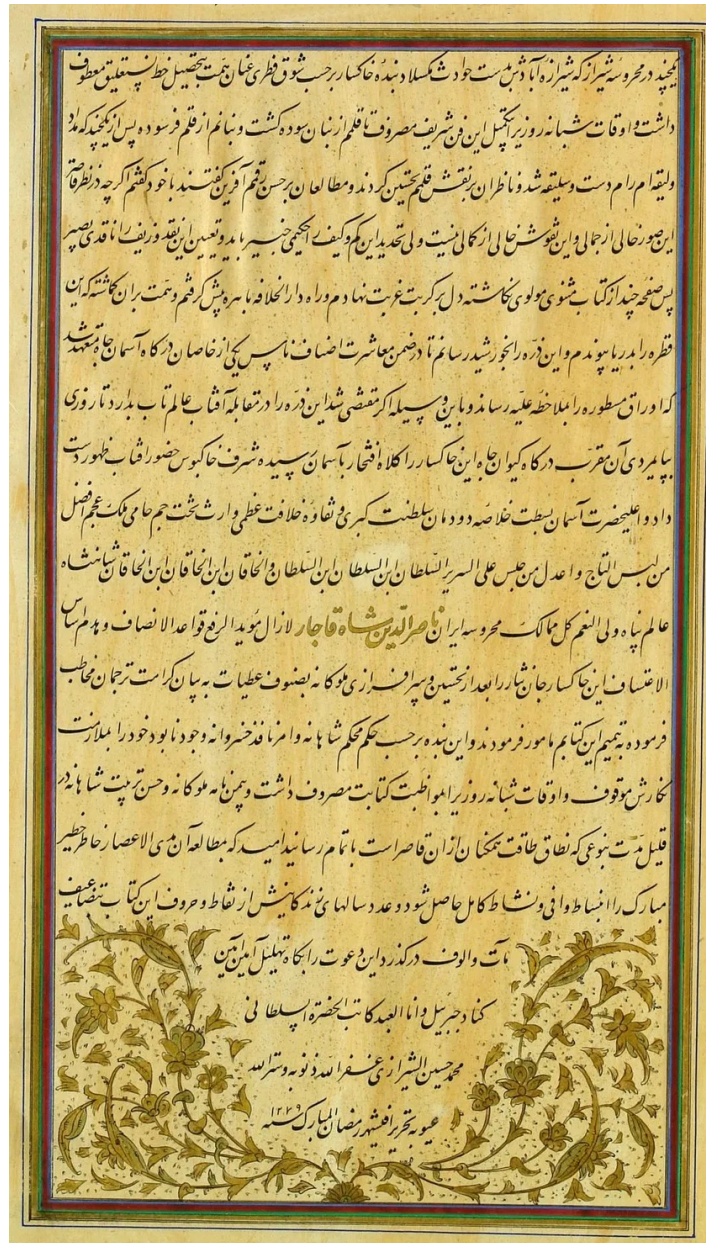 یکچند در محروسه شیراز که شیرازه آبادیش بدست حوادث مگسلاد بنده خاکسار بر حسب شوق فطری عنان همت بتحصیل خط نستعلیق معطوف
داشت و اوقات شبانه روز بر تکمیل این فن شریف مصروف تا قلم از بنان سوده گشت و بنانم از قلم فرسوده پس از یکچند که مداد
ولیقه ام رام دست و سلیقه شد و ناظران بر نقش قلمم تحسین کردند و مطالعان بر حسن رقمم آفرین گفتند با خود گفتم اگرچه در نظر قاصر
این صور خالی از جمالی و این نقوش خالی از کمالی نیست ولی تحدید این کم و کیف را حکیمی خبیر باید و تعیین این نقد و زیف را ناقدی بصیر
پس صفحه چند از کتاب مثنوی مولوی نگاشته دل بر کربت غربت نهادم و راه دار الخلافه باهره پیش گرفتم و همت بر آن گماشته که این
قطره را بدریا پیوندم و این ذره را بخورشید رسانم تا در ضمن معاشرت اصناف ناس یکی از خاصان درگاه آسمان جاه متعهد شد
که اوراق مسطوره را بملاحظه علیه رساند و باین وسیله اگر مقتضی شد این ذره را در مقابله آفتاب عالم تاب بدارد تا روزی
بپایمردی آن مقرب درگاه کیوان جاه این خاکسار را کلاه افتخار بآسمان رسیده شرف خاکبوس حضور آفتاب ظهور دست
داد و اعلیحضرت آسمان بسطت خلاصه دودمان سلطنت کبری و نقاوه خلافت عظمی وارث تخت جم حامی ملک عجم افضل
من لبس التاج و اعدل من جلس علی السریر السلطان ابن السلطان ابن السلطان و الخاقان ابن الخاقان ابن الخاقان شاهنشاه
عالم پناه ولی النعم کل ممالک محروسه ایران ناصر الدین شاه قاجار لازال مؤیدا لرفع قواعد الانصاف و هدم اساس
الاعتساف این خاکسار جان نثار را بعد از تحسین و سرافرازی ملوکانه بصنوف عطیات به بیان کرامت ترجمان مخاطب
فرموده به تتمیم این کتابم مامور فرمودند و این بنده بر حسب حکم محکم شاهانه و امر نافذ خسروانه وجود نابود خود را بملازمت
نگارش موقوف و اوقات شبانه روز بر مواظبت کتابت مصروف داشت و بیمن همه ملوکانه و حسن تربیت شاهانه در
قلیل مدت بنوعی که نطاق طاقت همگنان از آن قاصر است باتمام رسانید امید که مطالعه آن مدی الاعصار خاطر خطیر
مبارک را انبساط وافی و نشاط کامل حاصل شود و عدد سالهای زندگانیش از نقاط و حروف این کتاب بتضاعیف
مآت و الوف درگذرد این دعوت را بگاه تهلیل آمین آمین
کناد جبریل و انا العبد کاتب الحضرة السلطانی
محمد حسین الشیرازی غفر الله ذنوبه و ستر الله
عیوبه تحریرا فی شهر رمضان المبارک سنه ۱۲۷۹